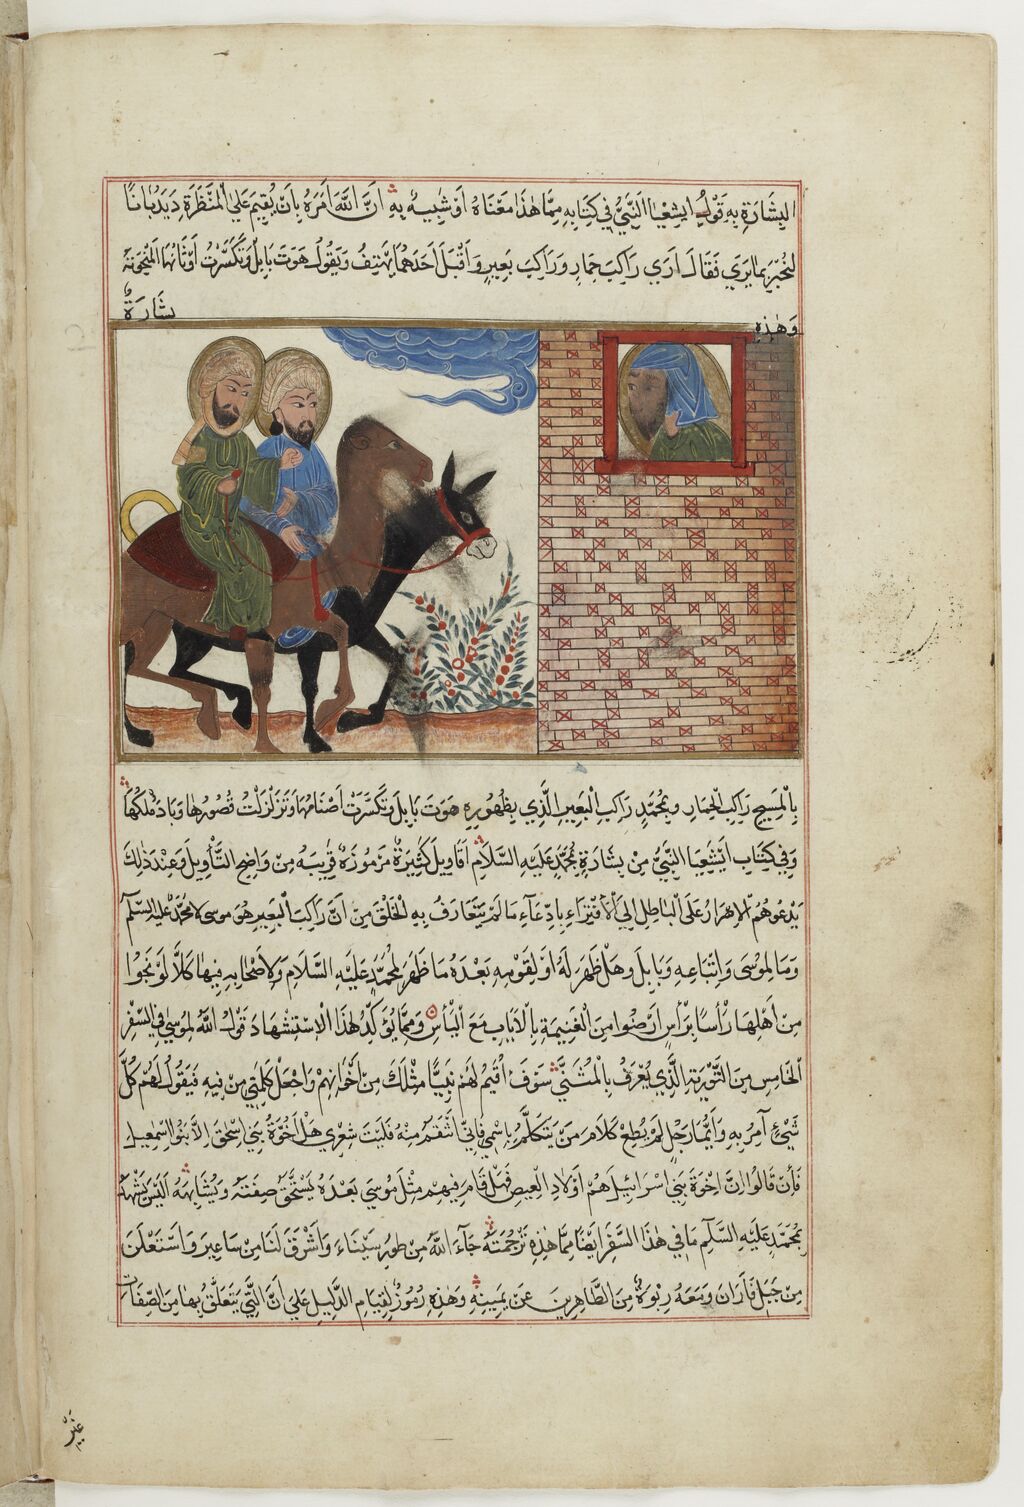 البِشَارَةِ بِهِ قَوْلُ ايشعيا النَّبِيُّ فِي كِتَابِهِ مِمَّا هٰذَا مَعْنَاهُ اَوْ شَبِيهٌ بِهِ اَنَّ اللّٰهَ اَمَرَهُ بِاَنْ يُقِيمَ عَلَى الْمَنْظَرَةِ دَيْدَبَانًا
لِيُخْبِرَ بِمَا يَرَى فَقَالَ اَرَى رَاكِبَ حِمَارٍ وَرَاكِبَ بَعِيرٍ وَاَقْبَلَ اَحَدُهُمَا يَهْتِفُ وَيَقُولُ هَوَتْ بَابِلُ وَتَكَسَّرَتْ اَوْثَانُهَا الْمَنْجُوتَةُ
وَهٰذِهِ بِشَارَةٌ
بِالْمَسِيحِ رَاكِبِ الْحِمَارِ وَبِمُحَمَّدٍ رَاكِبِ الْبَعِيرِ الَّذِي بِظُهُورِهِ هَوَتْ بَابِلُ وَتَكَسَّرَتْ اَصْنَامُهَا وَتَزَلْزَلَتْ قُصُورُهَا وَبَادَ مُلْكُهَا
وَفِي كِتَابِ ايشعيا النَّبِيُّ مِنْ بِشَارَةِ بِمُحَمَّدٍ عَلَيْهِ السَّلَامُ اَقَاوِيلُ كَثِيرَةٌ مَرْمُوزَةٌ قَرِيبَةٌ مِنْ وَاضِحِ التَّأْوِيلِ وَعِنْدَ ذٰلِكَ
يَدْعُوهُمُ الْاِصْرَارُ عَلَى الْبَاطِلِ اِلَى الْاِفْتِرَاءِ بِادِّعَاءِ مَا لَمْ يَتَعَارَفْ بِهِ الْخَلْقُ مِنْ اَنَّ رَاكِبَ الْبَعِيرِ هُوَ مُوسَى لَا مُحَمَّدٌ عليه السلم
وَمَا لِمُوسَى وَاَتْبَاعِهِ وَبَابِلَ وَهَلْ ظَهَرَ لَهُ اَوْ لِقَوْمِهِ بَعْدَهُ مَا ظَهَرَ لِمُحَمَّدٍ عَلَيْهِ السَّلَامُ وَلِاَصْحَابِهِ فِيهَا كَلَّا لَوْ نَجَوْا
مِنْ اَهْلِهَا رَأْسًا بِرَأْسٍ لَرَضُوا مِنَ الْغَنِيمَةِ بِالْاِيَابِ مَعَ الْيَأْسِ وَمِمَّا يُؤَكِّدُ هٰذَا الْاِسْتِشْهَادَ قَوْلُ اللّٰهِ لِمُوسَى فِي السِّفْرِ
الْخَامِسِ مِنَ التَّوْرَيةِ الَّذِي يُعْرَفُ بِالْمُثَنَّى سَوْفَ اُقِيمُ لَهُمْ نَبِيًّا مِثْلَكَ مِنْ اِخْوَانِهِمْ وَاَجْعَلُ كَلِمَتِي مِنْ فِيهِ فَيَقُولُ لَهُمْ كُلَّ
شَيْءٍ آمُرُ بِهِ وَاَيُّمَا رَجُلٍ لَمْ يُطِعْ كَلَامَ مَنْ يَتَكَلَّمُ بِاسْمِي فَاِنِّي اَنْتَقِمُ مِنْهُ فَلَيْتَ شِعْرِي هَلْ اِخْوَةُ بَنِي اِسْحٰقَ اِلَّا بَنُو اسمعيل
فَاِنْ قَالُوا اِنَّ اِخْوَةَ بَنِي اِسْرَائِيلَ هُمْ اَوْلَادُ الْعِيصِ فَهَلْ قَامَ فِيهِمْ مِثْلُ مُوسَى بَعْدَهُ يَسْتَحِقُّ صِفَتَهُ وَيُشَابِهُهُ اَلَيْسَ يَشْهَدُ
بِمُحَمَّدٍ عَلَيْهِ السَّلَم مَا فِي هٰذَا السِّفْرِ اَيْضًا مِمَّا هٰذِهِ تَرْجُمَتُهُ جَاءَ اللّٰهُ مِنْ طُورِ سَيْنَاءَ وَاَشْرَقَ لَنَا مِنْ سَاعِيرَ وَاسْتَعْلَنَ
مِنْ جَبَلِ فَارَانَ وَمَعَهُ رِبْوَةٌ مِنَ الطَّاهِرِينَ عَنْ يَمِينِهِ وَهٰذِهِ رُمُوزٌ لِقِيَامِ الدَّلِيلِ عَلَى اَنَّ الَّتِي يَتَعَلَّقُ بِهَا مِنَ الصِّفَاتِ